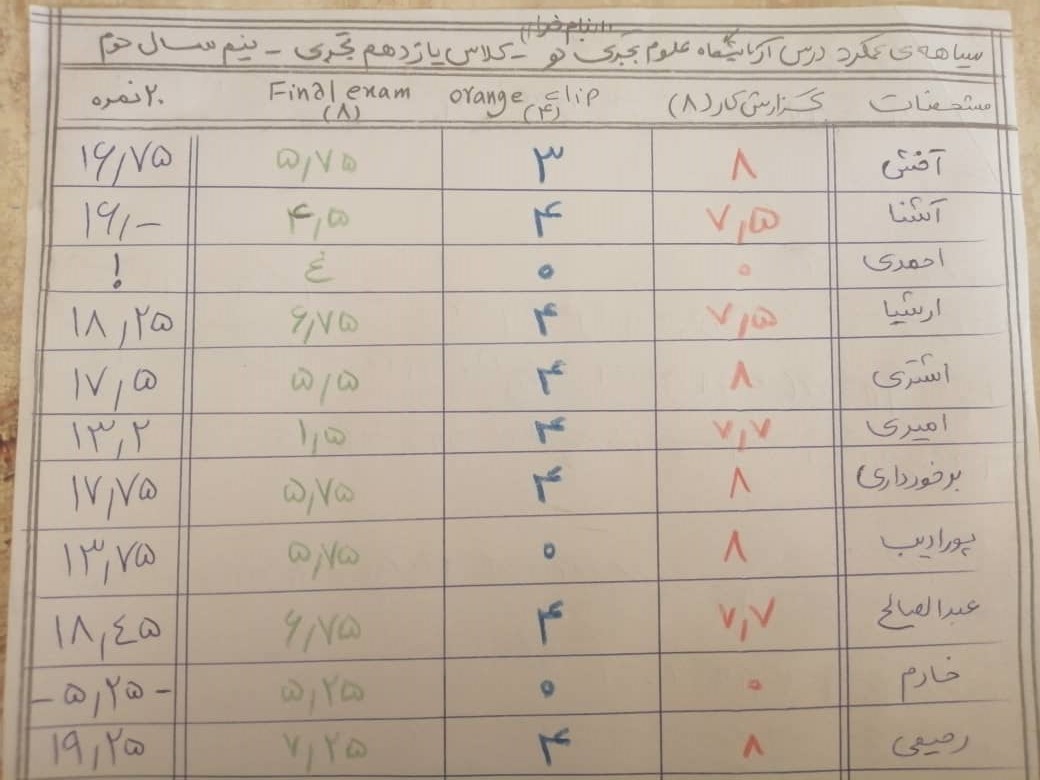 ((بنام خدا))
سیاهه‌ی عملکرد درس آزمایشگاه علوم تجربی دو - کلاس یازدهم تجربی - نیم سال دوم
مشخصات گزارش کار (۸) orange clip (۴) Final exam (۸) ۲۰ نمره
آفتی ۸ ۳ ۵,۷۵ ۱۶,۷۵
آشنا ۷,۵ ۴ ۴,۵ ۱۶,-
احمدی ۰ ۰ غ !
ارشیا ۷,۵ ۴ ۶,۷۵ ۱۸,۲۵
اشتری ۸ ۴ ۵,۵ ۱۷,۵
امیری ۷,۷ ۴ ۱,۵ ۱۳,۲
برخورداری ۸ ۴ ۵,۷۵ ۱۷,۷۵
پورادیب ۸ ۰ ۵,۷۵ ۱۳,۷۵
عبدالصالح ۷,۷ ۴ ۶,۷۵ ۱۸,٤۵
خادم ۰ ۰ ۵,۲۵ -۵,۲۵-
رحیمی ۸ ۴ ۷,۲۵ ۱۹,۲۵